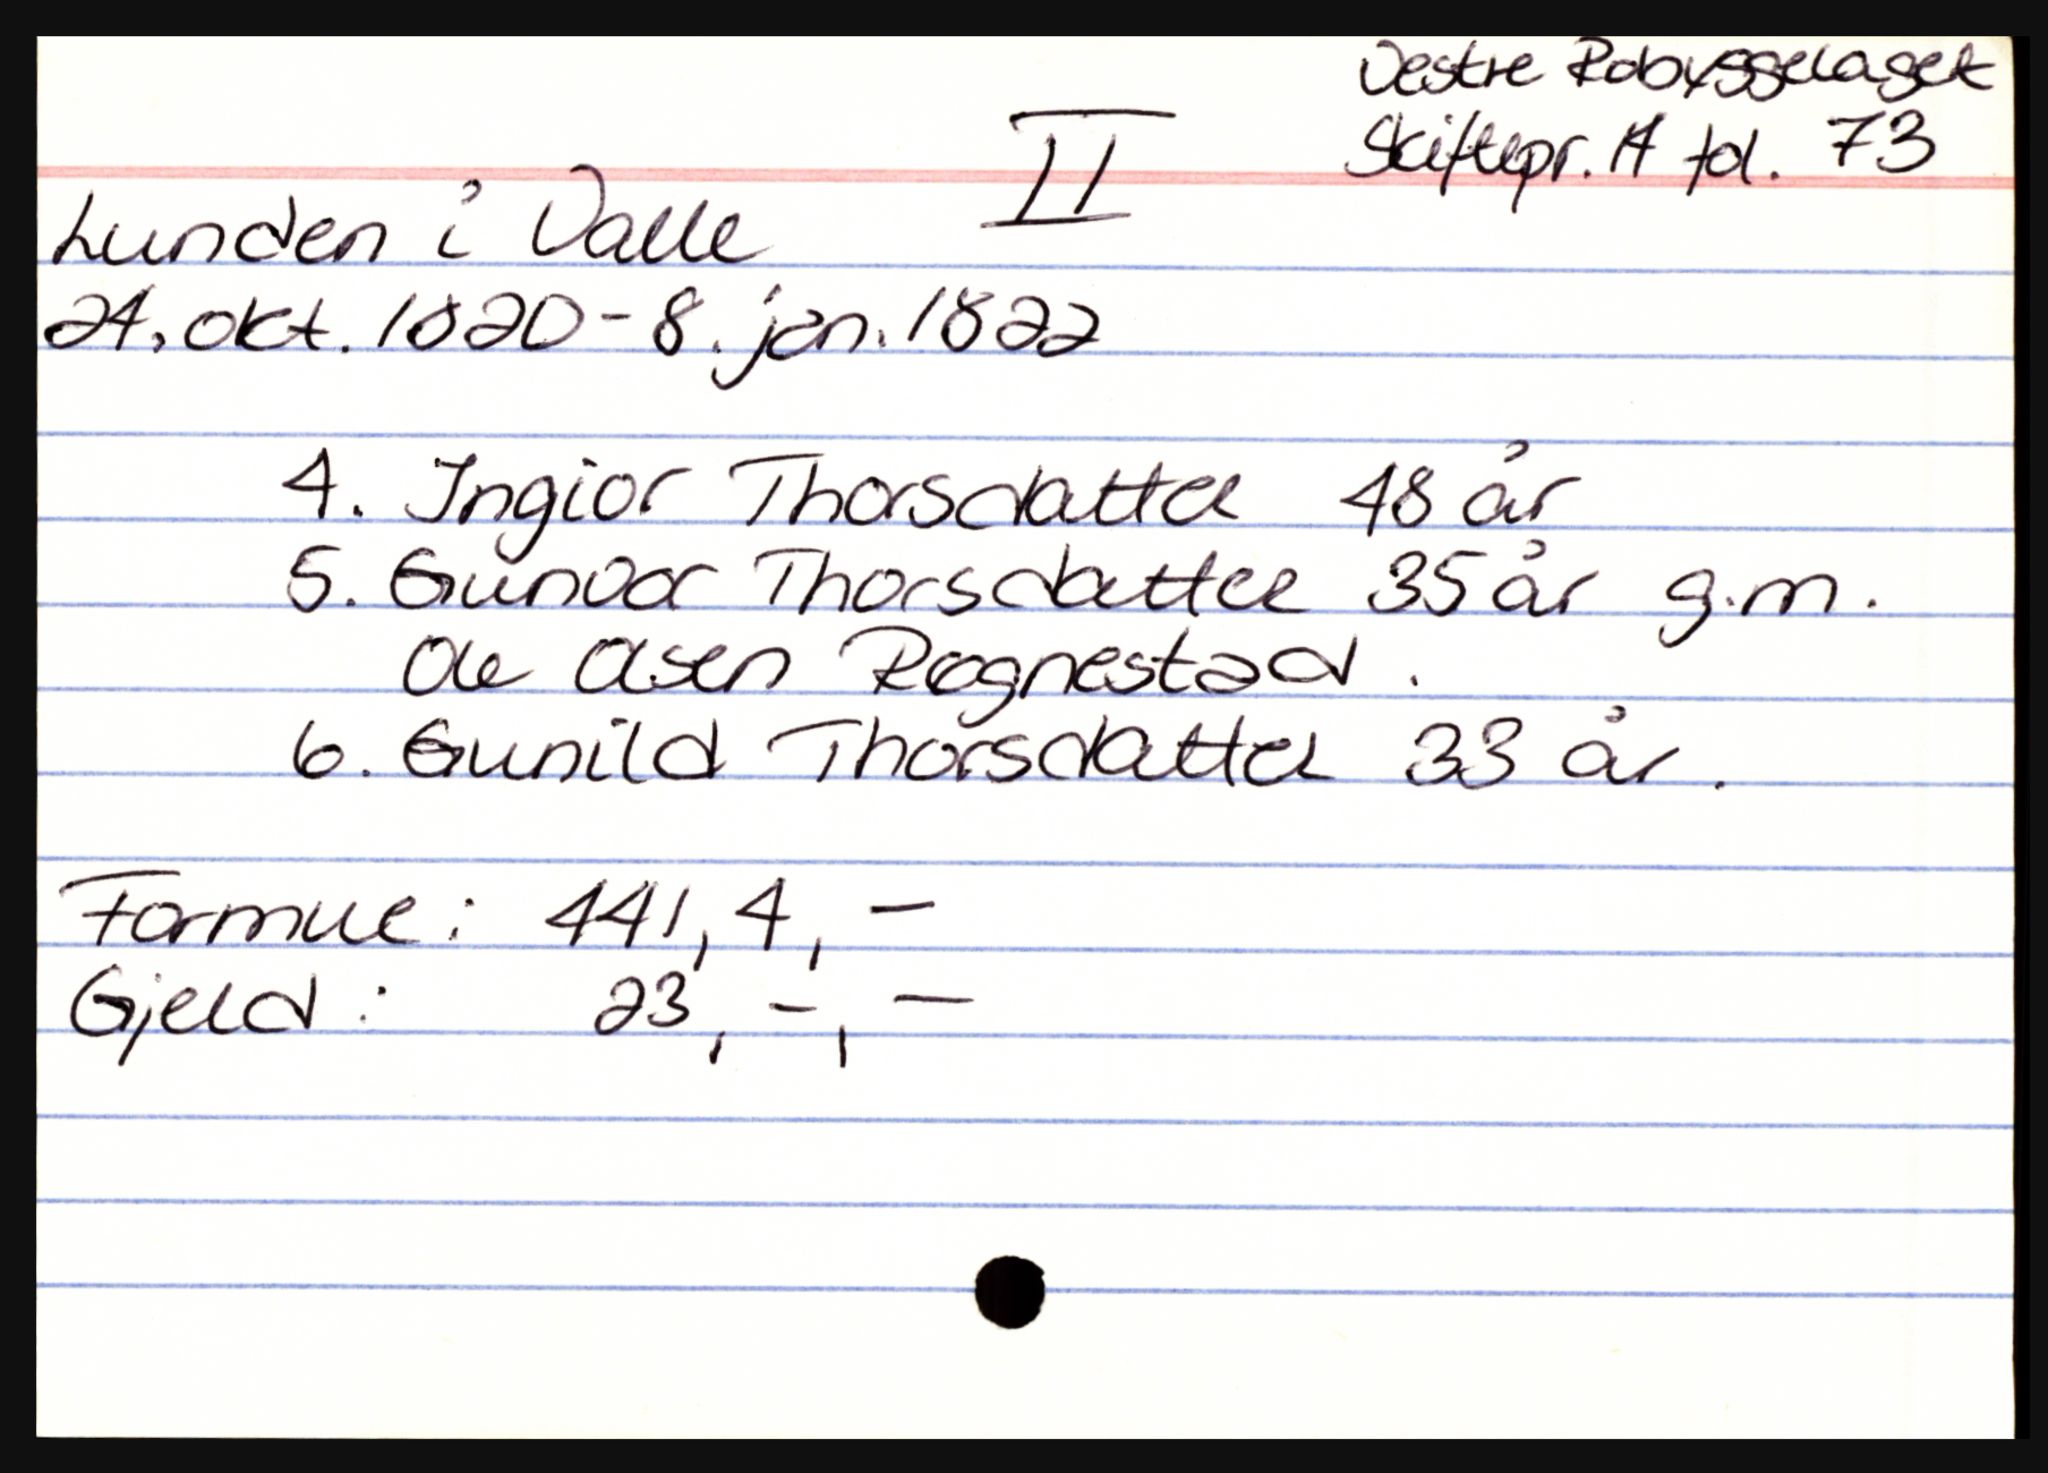 Vestre Robyggelaget
Skiftepr. A fol. 73
II
Lunden i Valle
24. okt. 1820 - 8. jan. 1822
4. Ingior Thorsdatter 48 år
5. Gunvor Thorsdatter 35 år g.m.
Ole Olsen Rognestad.
6. Gunild Thorsdatter 33 år.
Formue: 441, 4, -
Gjeld: 23, -, -